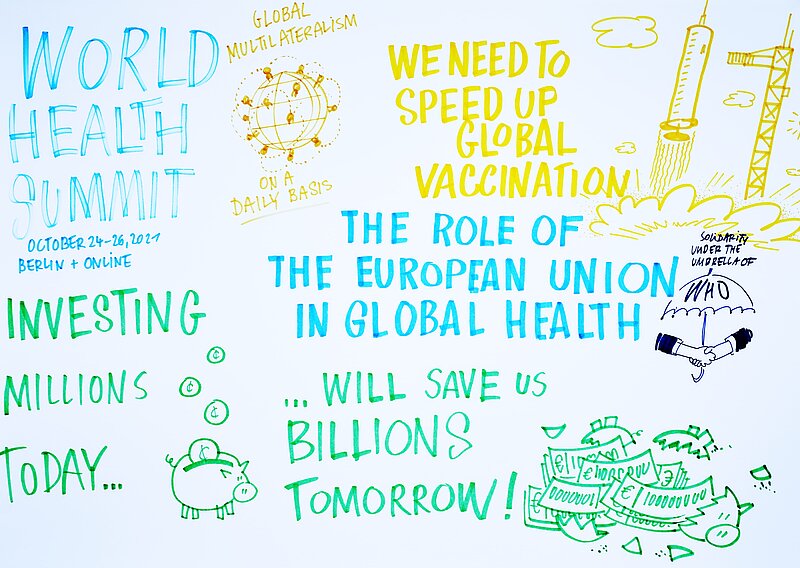 WORLD
HEALTH
SUMMIT
OCTOBER 24-26, 2021
BERLIN + ONLINE
GLOBAL
MULTILATERALISM
ON A
DAILY BASIS
WE NEED TO
SPEED UP
GLOBAL
VACCINATION
THE ROLE OF
THE EUROPEAN UNION
IN GLOBAL HEALTH
SOLIDARITY
UNDER THE
UMBRELLA OF
WHO
INVESTING
MILLIONS
TODAY...
¢
¢
¢
¢
... WILL SAVE US
BILLIONS
TOMORROW!